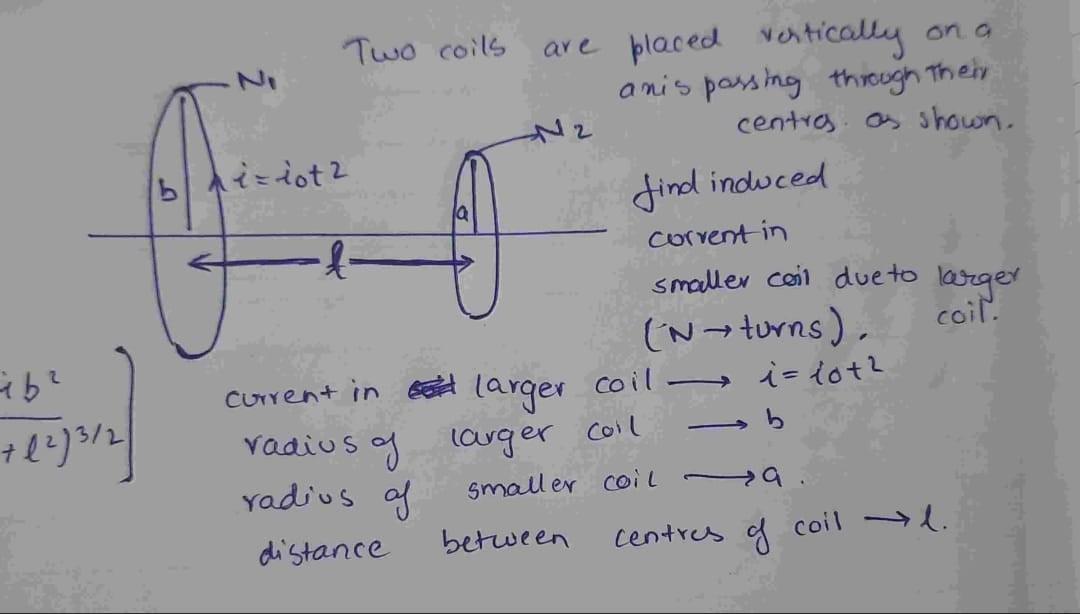 Two coils are placed vertically on a
axis passing through their
centres. as shown.
N1
N2
b
i = i0t2
a
l
find induced
current in
smaller coil due to larger
coil.
(N → turns).
current in larger coil → i = i0t2
radius of larger coil → b
radius of smaller coil → a.
distance between centres of coil → l.
ib²
+ l²)3/2